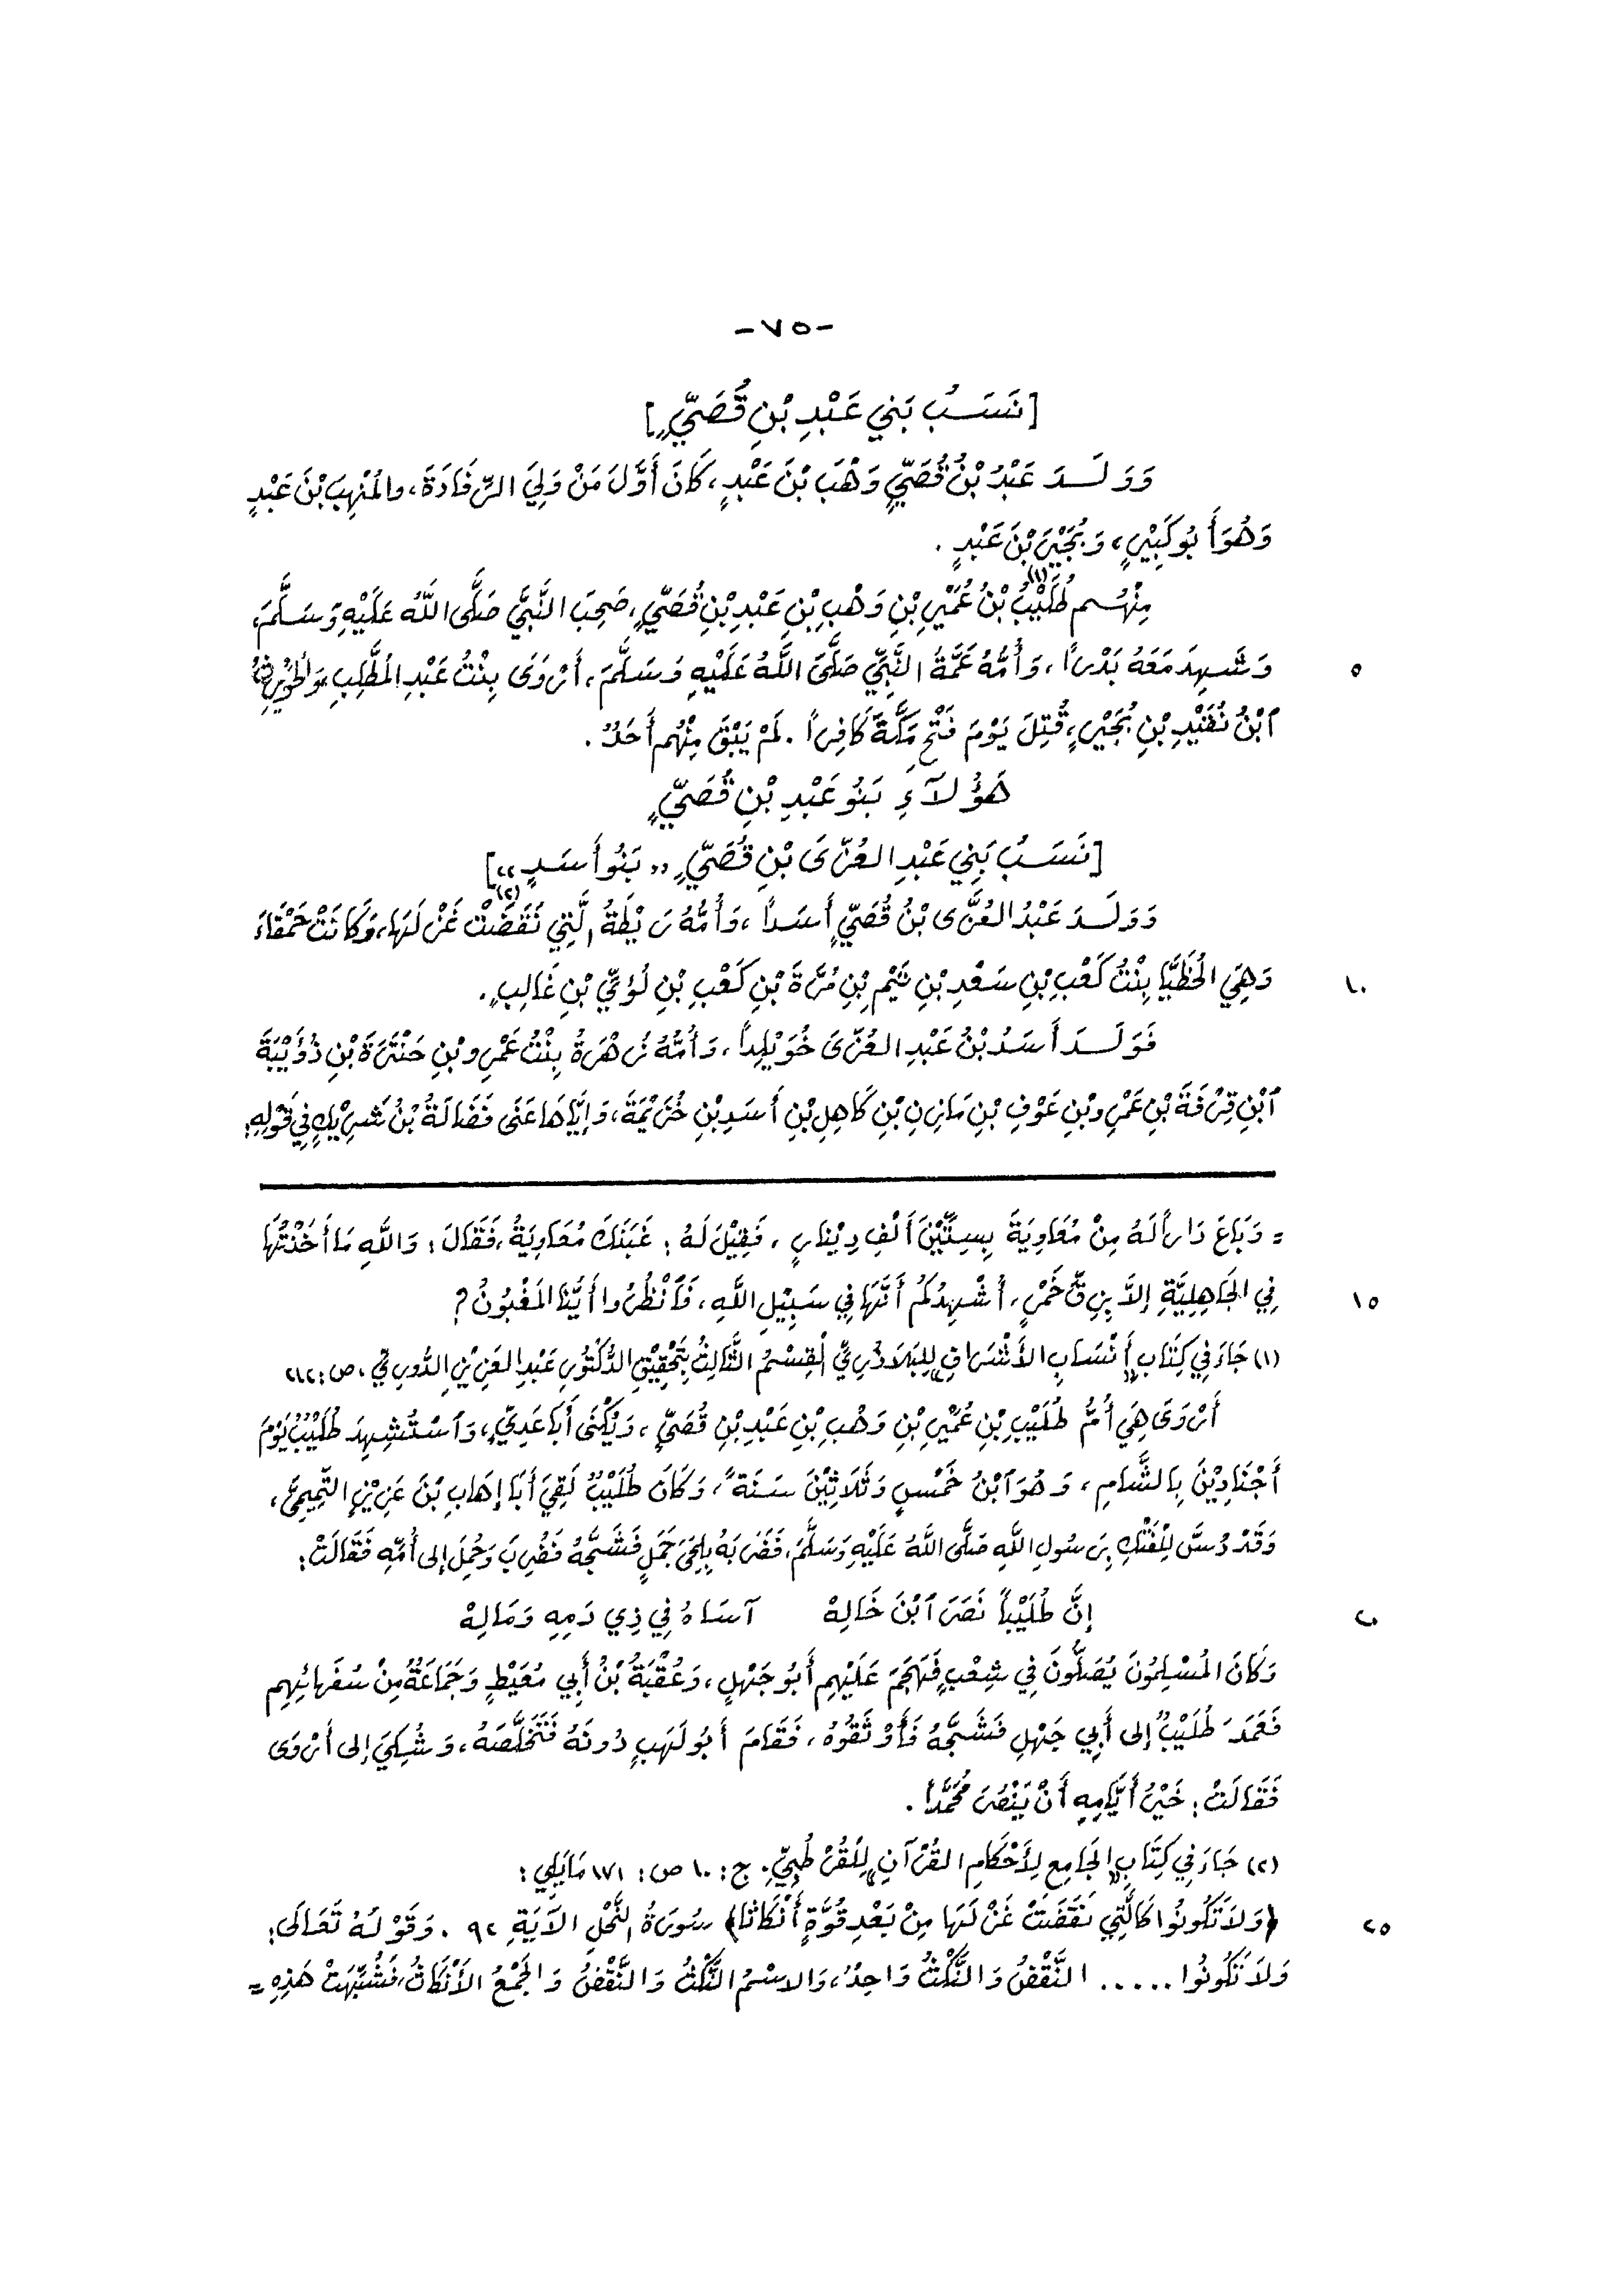 -٧٥-
[نَسَبُ بَنِي عَبْدِ بْنِ قُصَيٍّ]
وَوَلَدَ عَبْدُ بْنُ قُصَيٍّ وَهْبَ بْنَ عَبْدٍ، كَانَ أَوَّلَ مَنْ وَلِيَ الرِّفَادَةَ، والمُنْهِبَ بْنَ عَبْدٍ
وَهُوَ أَبُو كَبِيْرٍ، وَبُجَيْرَ بْنَ عَبْدٍ .
مِنْهُم طُلَيْبُ(١) بْنُ عُمَيْرِ بْنِ وَهْبِ بْنِ عَبْدِ بْنِ قُصَيٍّ، صَحِبَ النَّبِيَّ صَلَّى اللَّهُ عَلَيْهِ وَسَلَّمَ،
٥ وَشَهِدَ مَعَهُ بَدْراً، وَأُمُّهُ عَمَّةُ النَّبِيِّ صَلَّى اللَّهُ عَلَيْهِ وَسَلَّمَ، أَرْوَى بِنْتُ عَبْدِ المُطَّلِبِ، وَالحُوَيْرِثُ
ٱبْنُ نُقَيْدِ بْنِ بُجَيْرٍ، قُتِلَ يَوْمَ فَتْحِ مَكَّةَ كَافِراً . لَمْ يَبْقَ مِنْهُم أَحَدٌ .
هَؤُلاَءِ بَنُو عَبْدِ بْنِ قُصَيٍّ
[نَسَبُ بَنِي عَبْدِ العُزَّى بْنِ قُصَيٍّ «بَنُو أَسَدٍ»]
وَوَلَدَ عَبْدُ العُزَّى بْنُ قُصَيٍّ أَسَداً، وَأُمُّهُ رَيْطَةُ الَّتِي نَقَضَتْ(٢) غَزْلَهَا، وَكَانَتْ حَمْقَاءَ
١٠ وَهِيَ الحُظَيَّا بِنْتُ كَعْبِ بْنِ سَعْدِ بْنِ تَيْمِ بْنِ مُرَّةَ بْنِ كَعْبِ بْنِ لُؤَيِّ بْنِ غَالِبٍ.
فَوَلَدَ أَسَدُ بْنُ عَبْدِ العُزَّى خُوَيْلِداً، وَأُمُّهُ زُهْرَةُ بِنْتُ عَمْرِو بْنِ حَنْتَرَةَ بْنِ ذُؤَيْبَةَ
ٱبْنِ قِرْفَةَ بْنِ عَمْرِو بْنِ عَوْفِ بْنِ مَازِنِ بْنِ كَاهِلِ بْنِ أَسَدِ بْنِ خُزَيْمَةَ، وَإِيَّاهَا عَنَى فَضَالَةُ بْنُ شَرِيْكٍ فِي قَوْلِهِ:
= وَبَاعَ دَاراً لَهُ مِنْ مُعَاوِيَةَ بِسِتِّيْنَ أَلْفِ دِيْنَارٍ، فَقِيْلَ لَهُ: غَبَنَكَ مُعَاوِيَةُ، فَقَالَ: وَاللَّهِ مَا أَخَذْتُهَا
١٥ فِي الجَاهِلِيَّةِ إِلاَّ بِزِقِّ خَمْرٍ، أُشْهِدُكُمْ أَنَّهَا فِي سَبِيْلِ اللَّهِ، فَٱنْظُرُوا أَيُّنَا المَغْبُونُ؟
(١) جَاءَ فِي كِتَابِ «أَنْسَابِ الأَشْرَافِ» لِلبَلاَذُرِيِّ القِسْمُ الثَّالِثُ بِتَحْقِيْقِ الدُّكْتُورِ عَبْدِ العَزِيْزِ الدُّورِيِّ، ص: ٢١٢
أَرْوَى هِيَ أُمُّ طُلَيْبِ بْنِ عُمَيْرِ بْنِ وَهْبِ بْنِ عَبْدِ بْنِ قُصَيٍّ، وَيُكْنَى أَبَا عَدِيٍّ، وَٱسْتُشْهِدَ طُلَيْبٌ يَوْمَ
أَجْنَادِيْنَ بِالشَّامِ، وَهُوَ ٱبْنُ خَمْسٍ وَثَلاَثِيْنَ سَنَةً، وَكَانَ طُلَيْبٌ لَقِيَ أَبَا إِهَابِ بْنَ عَزِيْزٍ التَّمِيمِيَّ،
وَقَدْ دُسَّ لِلْفَتْكِ بِرَسُولِ اللَّهِ صَلَّى اللَّهُ عَلَيْهِ وَسَلَّمَ، فَضَرَبَهُ بِلَحْيِ جَمَلٍ فَشَجَّهُ فَضُرِبَ وَحُمِلَ إِلى أُمِّهِ فَقَالَتْ:
٢٠ إِنَّ طُلَيْباً نَصَرَ ٱبْنَ خَالِهْ آسَاهُ فِي ذِي دَمِهِ وَمَالِهْ
وَكَانَ المُسْلِمُونَ يُصَلُّونَ فِي شِعْبٍ فَهَجَمَ عَلَيْهِم أَبُو جَهْلٍ، وَعُقْبَةُ بْنُ أَبِي مُعَيْطٍ وَجَمَاعَةٌ مِنْ سُفَهَائِهِم
فَعَمَدَ طُلَيْبٌ إِلى أَبِي جَهْلٍ فَشَجَّهُ فَأَوْثَقُوْهُ، فَقَامَ أَبُو لَهَبٍ دُونَهُ فَتَخَلَّصَهُ، وَشُكِيَ إِلى أَرْوَى
فَقَالَتْ: خَيْرُ أَيَّامِهِ أَنْ يَنْصُرَ مُحَمَّداً .
(٢) جَاءَ فِي كِتَابِ «الجَامِعِ لِأَحْكَامِ القُرْآنِ» لِلقُرْطُبِيِّ. ج: ١٠ ص: ١٧١ مَا يَلِي:
٢٥ ﴿وَلاَ تَكُونُوا كَالَّتِي نَقَضَتْ غَزْلَهَا مِنْ بَعْدِ قُوَّةٍ أَنْكَاثاً﴾ سُورَةُ النَّحْلِ الآيَةِ ٩٢ . وَقَوْلَهُ تَعَالَى:
وَلاَ تَكُونُوا ..... النَّقْضُ وَالنَّكْثُ وَاحِدٌ، وَالاسْمُ النَّكْثُ وَالنَّقْضُ وَالجَمْعُ الأَنْكَاثُ، فَشُبِّهَتْ هَذِهِ =